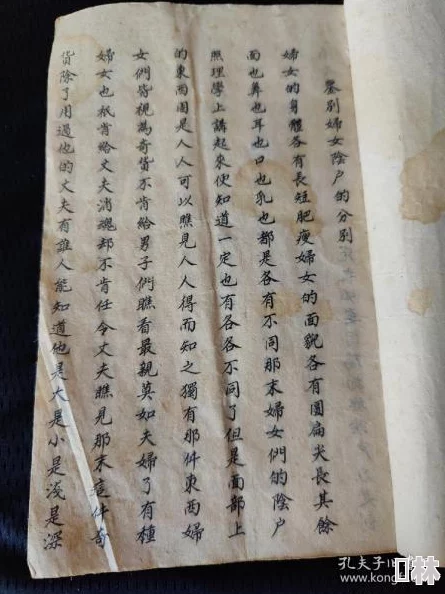 鑒別婦女陰户的分別
婦女的身體各有長短肥瘦婦女的面貌各有圆扁尖長其餘
面也鼻也耳也口也乳也都是各有不同那末婦女們的陰户
照理學上講起來便知道一定也有各各不同了但是面部上
的東西固是人人可以瞧見人人得而知之獨有那件東西婦
女們皆視為奇貨不肯給男子們瞧看最親莫如夫婦了有種
婦女也祇肯給丈夫消魂却不肯任令丈夫瞧見那末這件奇
貨除了用過他的丈夫有誰人能知道他是大是小是浅是深
孔夫子旧
林